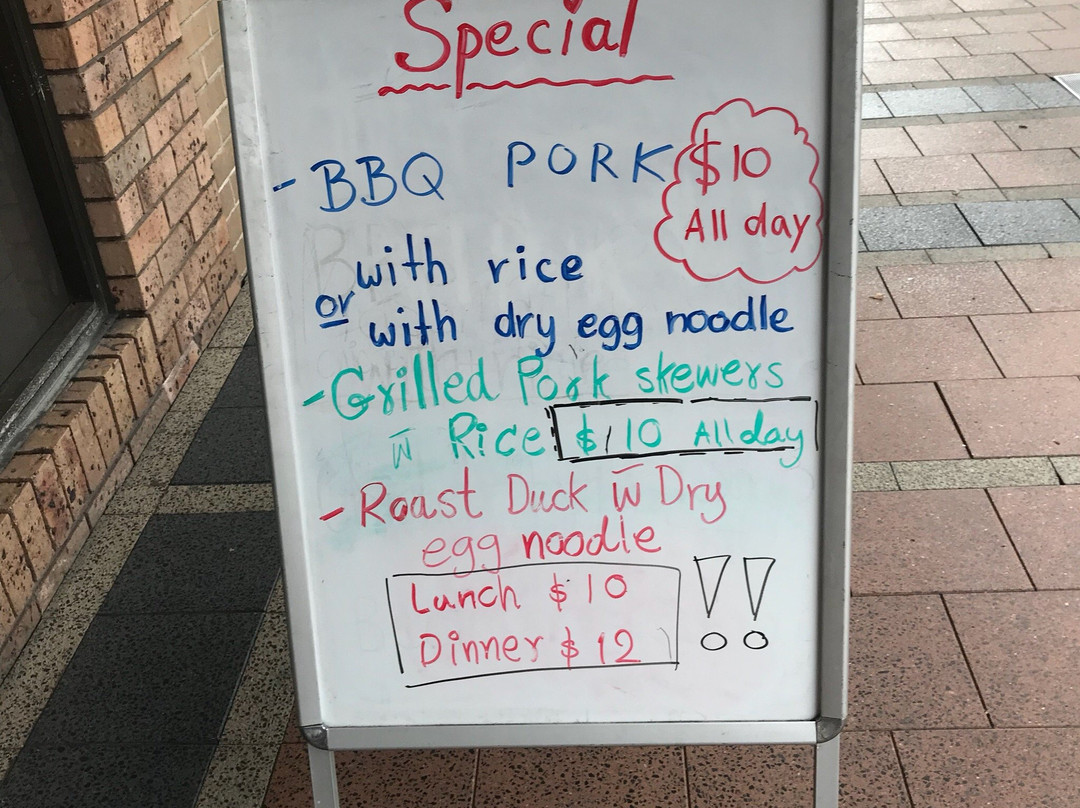 Special
- BBQ PORK $10
All day
with rice
or
with dry egg noodle
- Grilled Pork skewers
w̅ Rice $10 All day
- Roast Duck w̅ Dry
egg noodle
Lunch $10
Dinner $12
!!